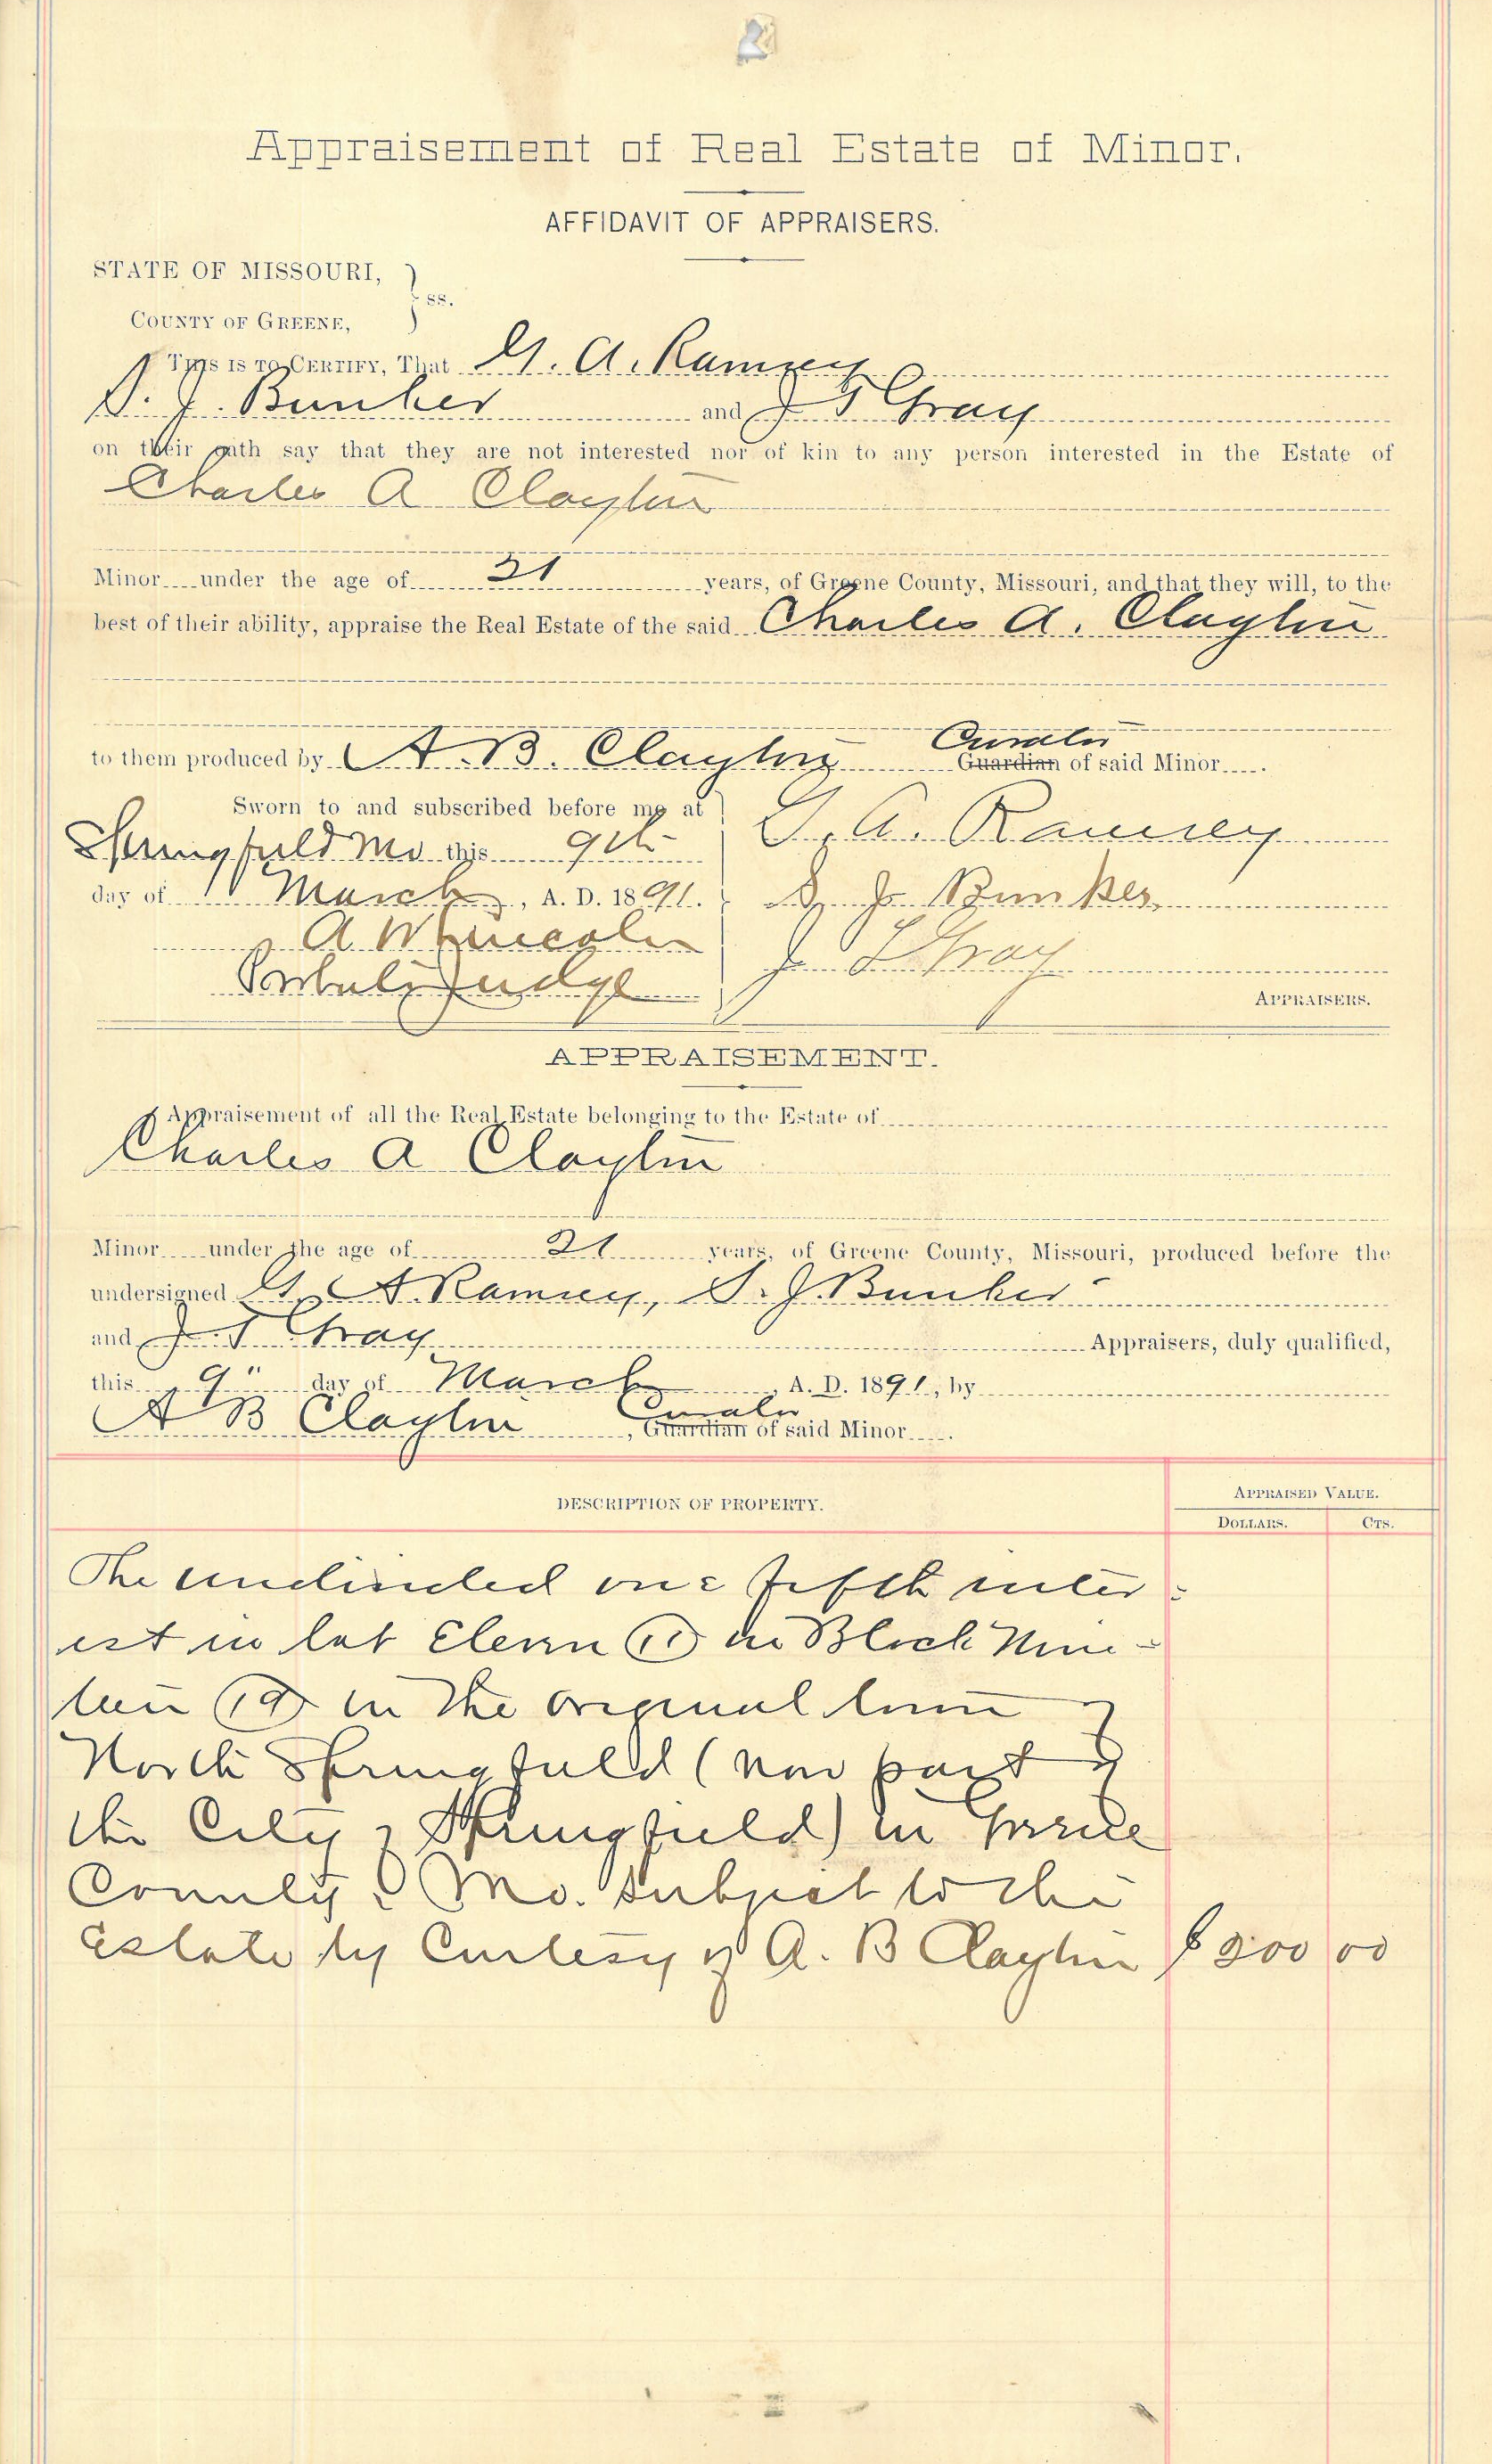 Appraisement of Real Estate of Minor.
AFFIDAVIT OF APPRAISERS.
STATE OF MISSOURI,
ss.
COUNTY OF GREENE,
THIS IS TO CERTIFY, That G. A. Ramsey
S. J. Bunker and J T Gray
on their oath say that they are not interested nor of kin to any person interested in the Estate of
Charles A Clayton
Minor under the age of 21 years, of Greene County, Missouri, and that they will, to the
best of their ability, appraise the Real Estate of the said Charles A. Clayton
Curator
to them produced by A. B. Clayton Guardian of said Minor
Sworn to and subscribed before me at
Springfield Mo this 9th
day of March, A. D. 1891.
A W Lincoln
Probate Judge
G. A. Ramsey
S. J. Bunker
J T Gray
APPRAISERS.
APPRAISEMENT.
Appraisement of all the Real Estate belonging to the Estate of
Charles A Clayton
Minor under the age of 21 years, of Greene County, Missouri, produced before the
undersigned G. A. Ramsey, S. J. Bunker
and J. T Gray Appraisers, duly qualified,
this 9" day of March, A. D. 1891, by
Curator
A B Clayton, Guardian of said Minor
DESCRIPTION OF PROPERTY.
APPRAISED VALUE.
DOLLARS. CTS.
The undivided one fifth inter-
est in lot Eleven (11) in Block Nine-
teen (19) in the original town of
North Springfield (now part of
the City of Springfield) in Greene
County, Mo. subject to the
Estate by Curtesy of A. B Clayton $200 00